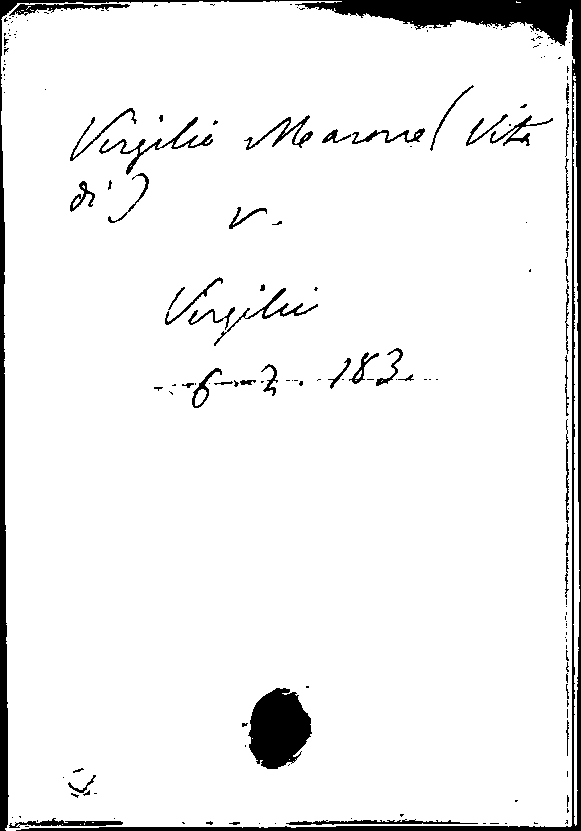 Virgilio Marone (Vita
di)
V.
Virgilio
6-2. 183.